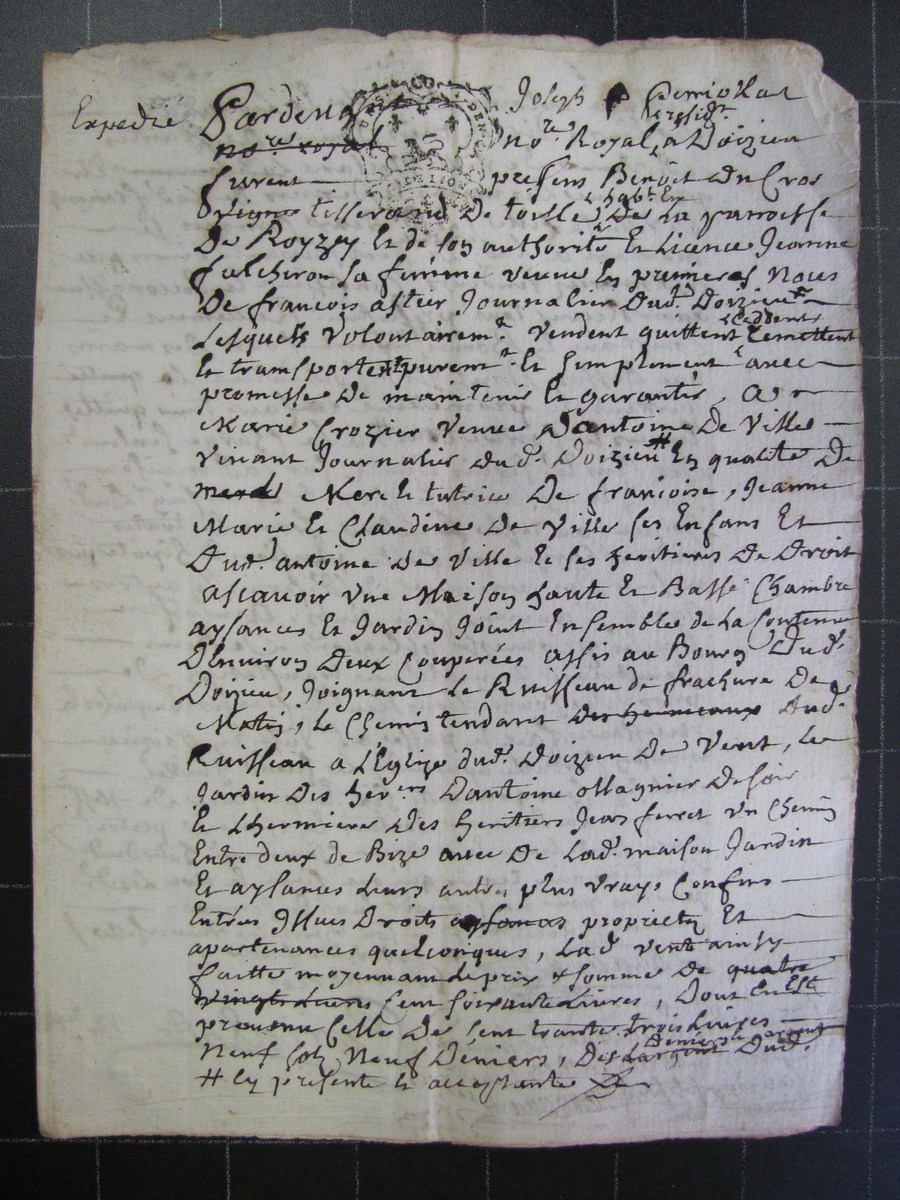 Expedié
Pardevant Joseph Perriollat
no.re royal no.re Royal residt. a Doizieu
furent presens Benoit Du Cros
vigne tisserand De toille habt. En De La paroisse
De Royzey Et de son authorité Et Licence Jeanne
fulchiron sa femme veuve En premieres Noces
De francois astier Journalier Dud. Doizieu
Lesquels Volontairemt. vendent quittent Ceddent remettent
Et transportent puremt. Et simplement avec
promesse De maintenir Et garantir, A
Marie Crozier veuve D'antoine De Ville
vivant Journalier dud. Doizieu # En qualité De
Mere Et tutrice De francoise, Jeanne
Marie Et Claudine De Ville ses Enfans Et
Dud. antoine De Ville Et ses heritieres De Droit
ascavoir vne Maison haute Et Basse Chambre
aysances Et Jardin Joint Ensembles de La Contenue
D'Environ Deux Couperées assis au Bourg Dud.
Doizieu, Joignant Le Ruisseau de frachure De
Matin, Le Chemin tendant Dud.
Ruisseau a L'Eglize dud. Doizieu De Vent, Le
Jardin Des hers. D'antoine Magnier De soir
Et Lhermiere Des heritiers Jean ferret vn Chemin
Entre deux de Bize avec De Lad. maison Jardin
Et aysances Leurs autres plus vrays Confins
Entrées Issues Droits aysances proprietés Et
apartenances quelconques, Lad. vente ainsy
faitte moyennant Le prix & somme De quatre
vingt Cent soixante Livres, Dont En Est
provenu Celle De Cent trante trois Livres
Neuf sols Neuf Deniers, Des Deniers Et argent Dud.
# Cy presente Et acceptante